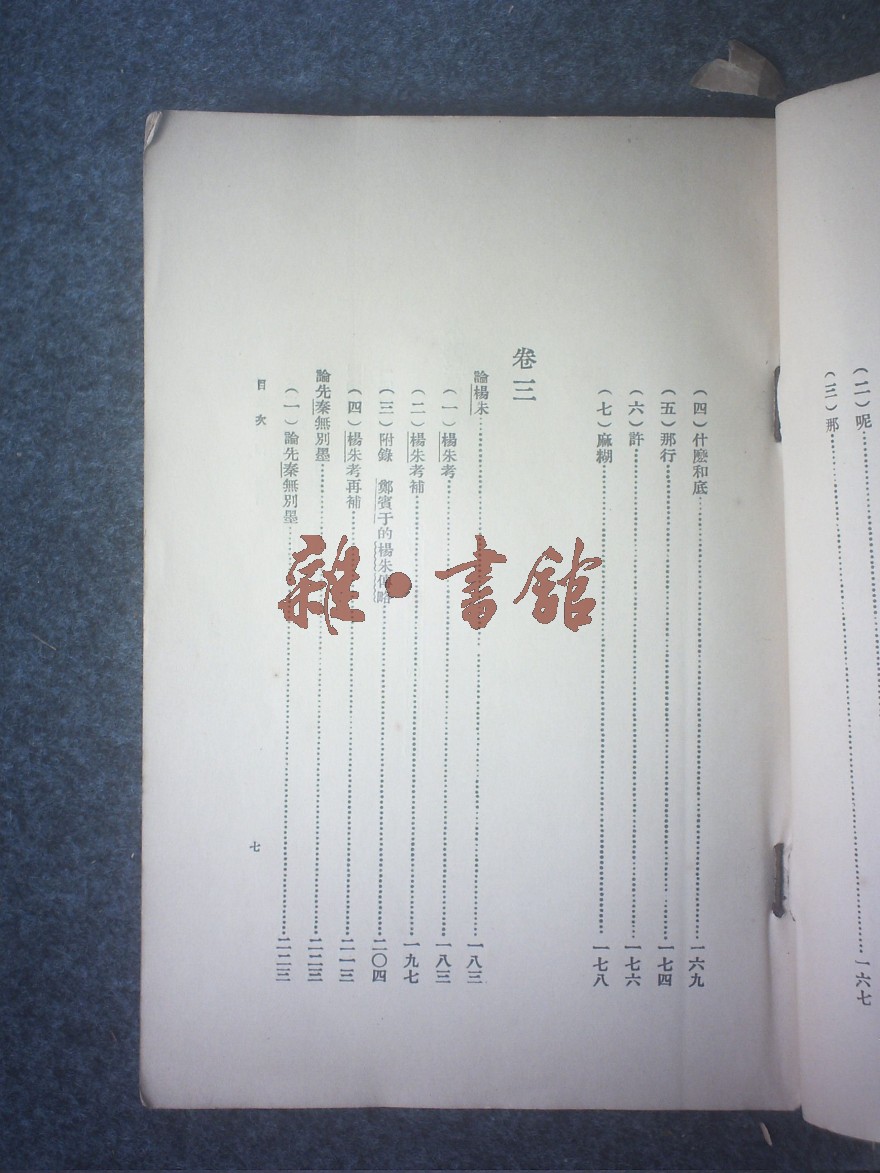 (二)呢……一六七
(三)那
(四)什麼和底……一六九
(五)那行……一七四
(六)許……一七六
(七)麻糊……一七八
卷三
論楊朱……一八三
(一)楊朱考……一八三
(二)楊朱考補……一九七
(三)附錄 鄭賓于的楊朱傳略……二〇四
(四)楊朱考再補……二一三
論先秦無別墨……二二三
(一)論先秦無別墨……二二三
目次
七
雜·書館